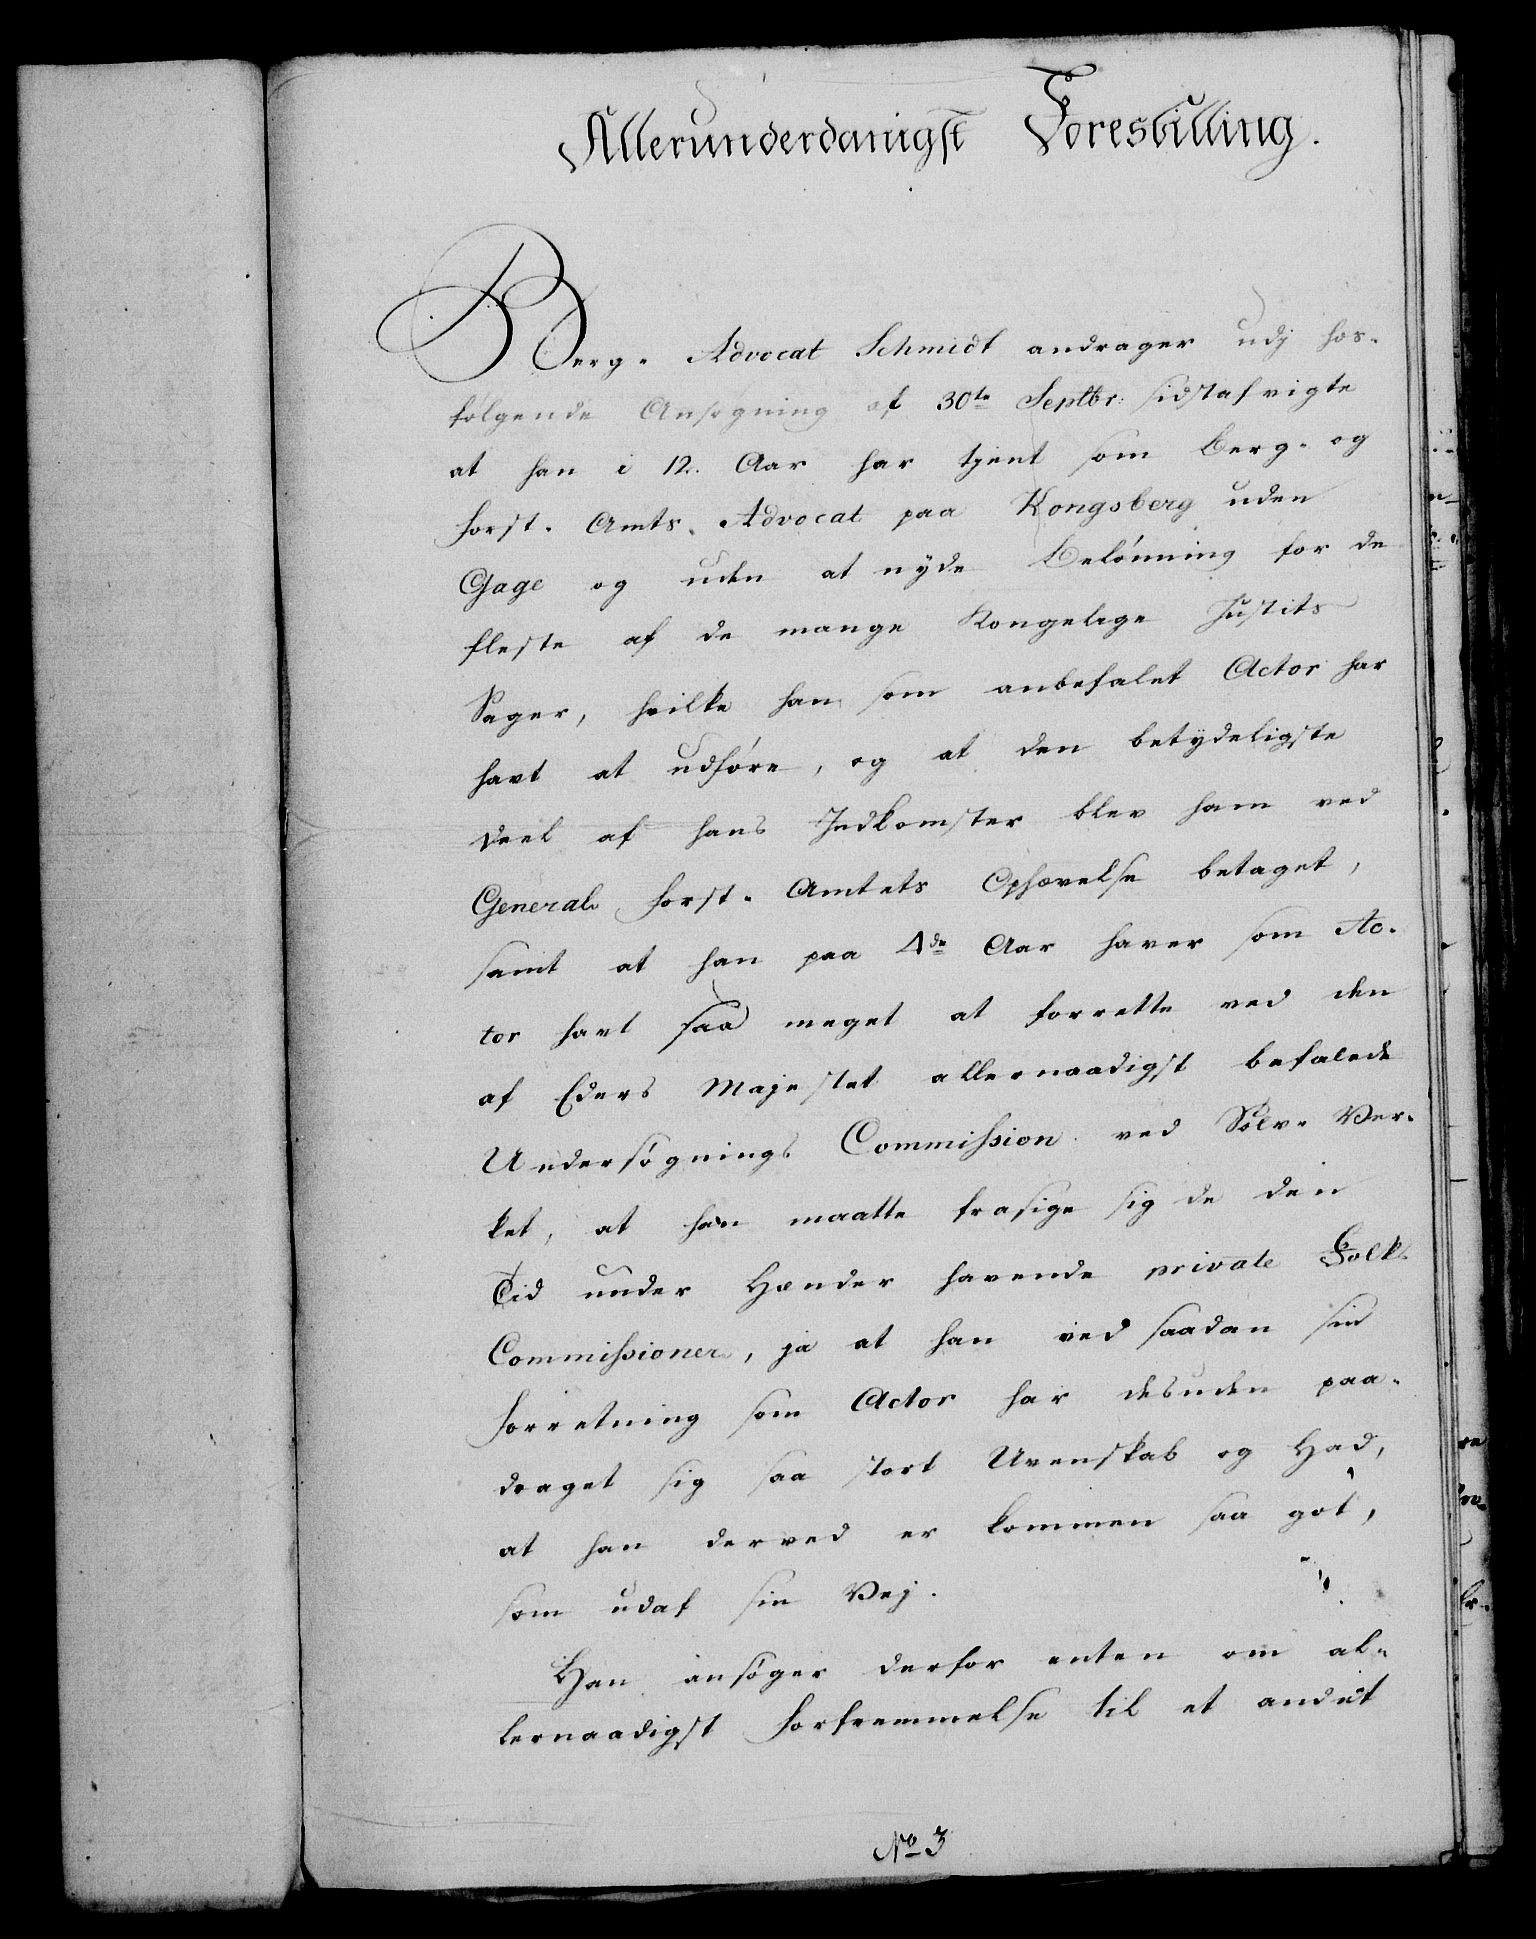 Allerunderdanigst Forestilling.
Berg- Advocat Schmidt andrager udj hos-
følgende Ansøgning af 30te Septbr: sidstafvigte
at han i 12. Aar har tjent som Berg- og
Forst- Amts- Advocat paa Kongsberg uden
Gage og uden at nyde Belønning for de
fleste af de mange Kongelige Justits
Sager, hvilke han som anbefalet Actor har
havt at udføre, og at den betydeligste
Deel af hans Indkomster blev ham ved
General- Forst- Amtets Ophævelse betaget,
samt at han paa 4de Aar haver som Ac-
tor havt saa meget at forrette ved den
af Eders Majestet allernaadigst befalede
Undersøgnings Commission ved Sølv- Ver-
ket, at han maatte frasige sig de den
Tid under Hænder havende private Folks
Commissioner, ja at han ved saadan sin
Forretning som Actor har desuden paa-
draget sig saa stort Uvenskab og Had,
at han derved er kommen saa got,
som udaf sin Vej.
Han ansøger derfor enten om al-
lernaadigst Forfremmelse til et andet
No 3